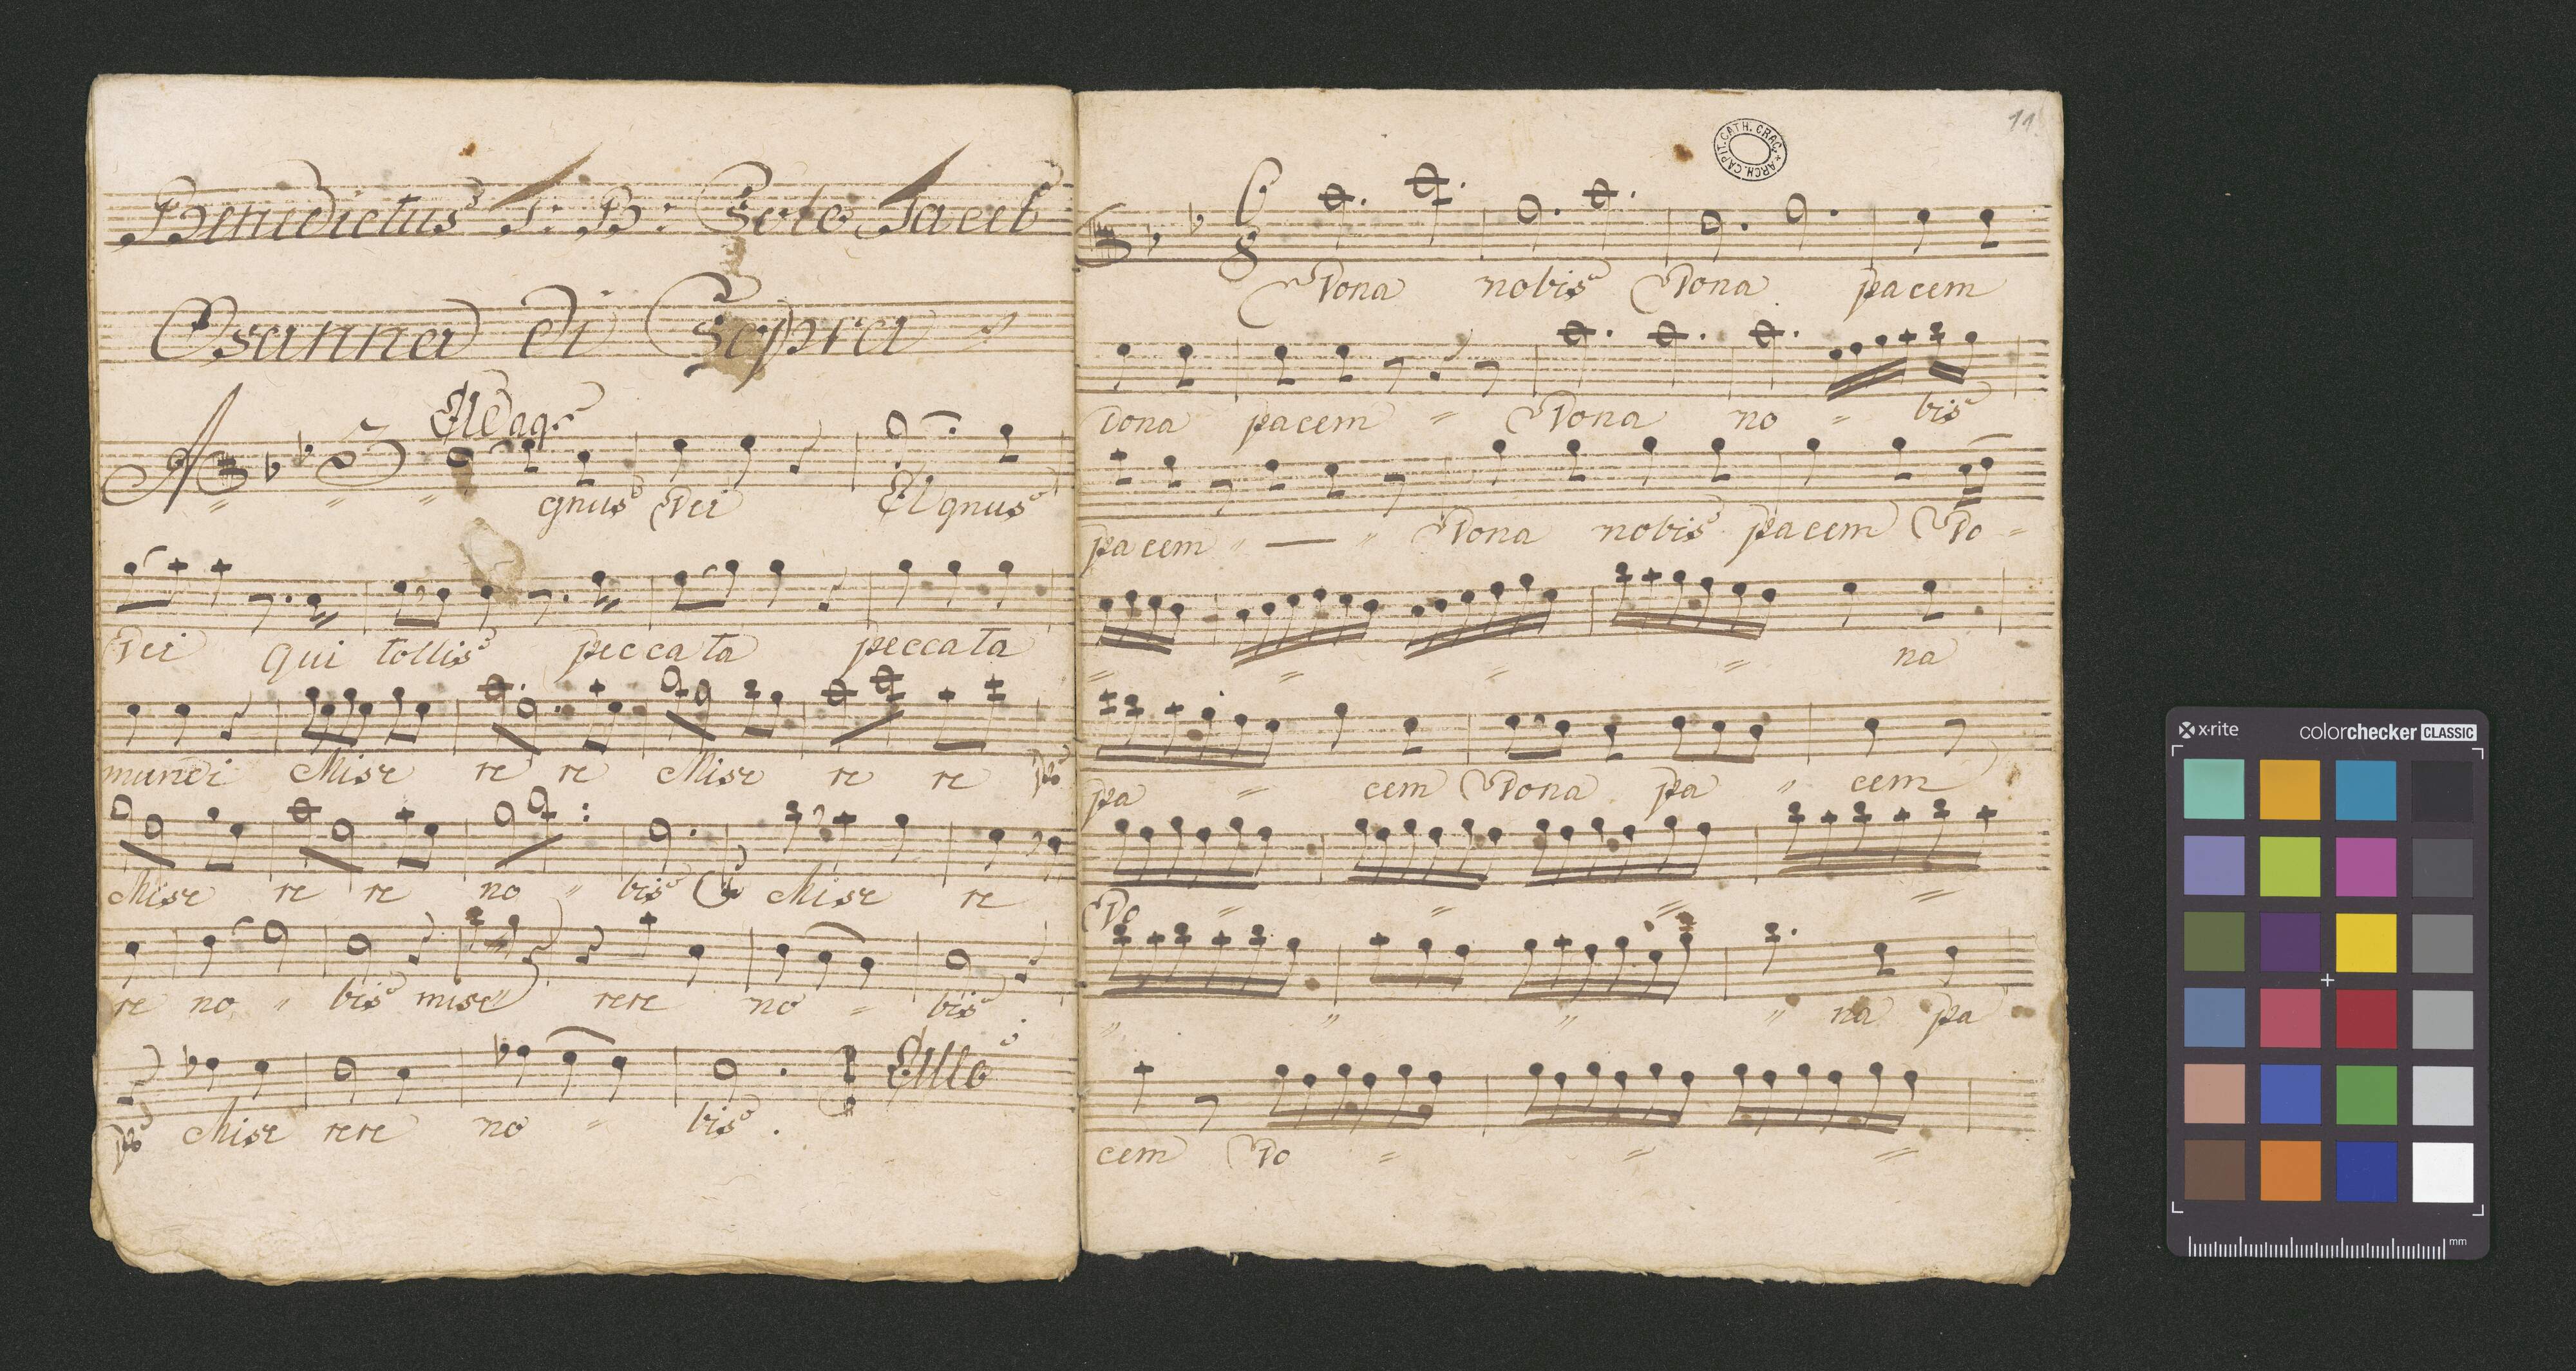 Benedictus T: B: Solo Tacet
Osanna di Sopra
Adag:
A gnus Dei Agnus
Dei qui tollis peccata peccata
mundi Mise re re Mise re re
Mise re re no bis Mise re
re no bis mise rere no bis
Mise rere no bis. Allo
11
ARCH. CAPIT. CATH. CRAC.
6
8
Dona nobis Dona pacem
Dona pacem Dona no bis
pacem Dona nobis pacem Do
na
pa cem Dona pa cem
Do
na pa
cem Do
x-rite colorchecker CLASSIC
mm